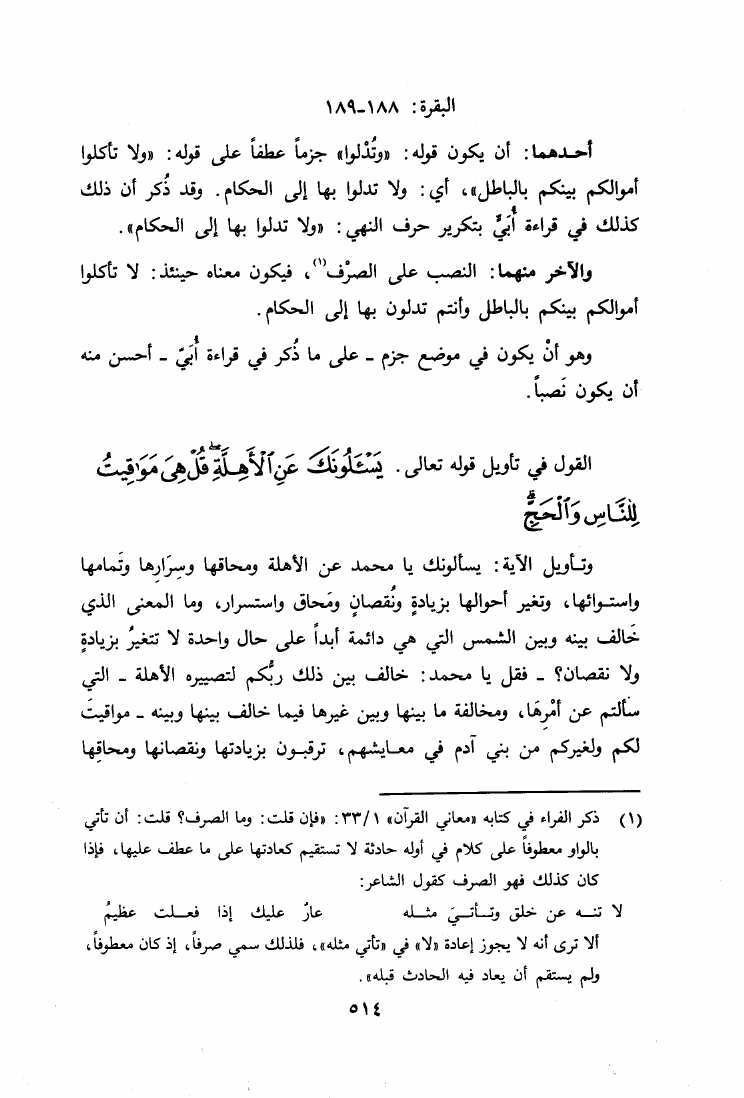 البقرة: ١٨٨-١٨٩
أحدهما: أن يكون قوله: «وتُدْلوا» جزماً عطفاً على قوله: «ولا تأكلوا
أموالكم بينكم بالباطل»، أي: ولا تدلوا بها إلى الحكام. وقد ذُكر أن ذلك
كذلك في قراءة أُبَيٍّ بتكرير حرف النهي: «ولا تدلوا بها إلى الحكام».
والآخر منهما: النصب على الصرْف(١)، فيكون معناه حينئذ: لا تأكلوا
أموالكم بينكم بالباطل وأنتم تدلون بها إلى الحكام.
وهو أنْ يكون في موضع جزم - على ما ذُكر في قراءة أُبَيّ - أحسن منه
أن يكون نَصباً.
القول في تأويل قوله تعالى. يَسْـَٔلُونَكَ عَنِ ٱلْأَهِلَّةِۖ قُلْ هِىَ مَوَٰقِيتُ
لِلنَّاسِ وَٱلْحَجِّۗ
وتأويل الآية: يسألونك يا محمد عن الأهلة ومحاقها وسِرَارِها وتَمامها
واستوائها، وتغير أحوالها بزيادةٍ ونُقصانٍ ومَحاق واستسرار، وما المعنى الذي
خَالف بينه وبين الشمس التي هي دائمة أبداً على حال واحدة لا تتغيرُ بزيادةٍ
ولا نقصان؟ - فقل يا محمد: خالف بين ذلك ربُّكم لتصييره الأهلة - التي
سألتم عن أمْرِهَا، ومخالفة ما بينها وبين غيرها فيما خالف بينها وبينه - مواقيتَ
لكم ولغيركم من بني آدم في معايشهم، ترقبون بزيادتها ونقصانها ومحاقِها
(١) ذكر الفراء في كتابه «معاني القرآن» ٣٣/١: «فإن قلت: وما الصرف؟ قلت: أن تأتي
بالواو معطوفاً على كلام في أوله حادثة لا تستقيم كعادتها على ما عطف عليها، فإذا
كان كذلك فهو الصرف كقول الشاعر:
لا تنه عن خلق وتأتيَ مثله عارٌ عليك إذا فعلت عظيمُ
ألا ترى أنه لا يجوز إعادة «لا» في «تأتي مثله»، فلذلك سمي صرفاً، إذ كان معطوفاً،
ولم يستقم أن يعاد فيه الحادث قبله».
٥١٤